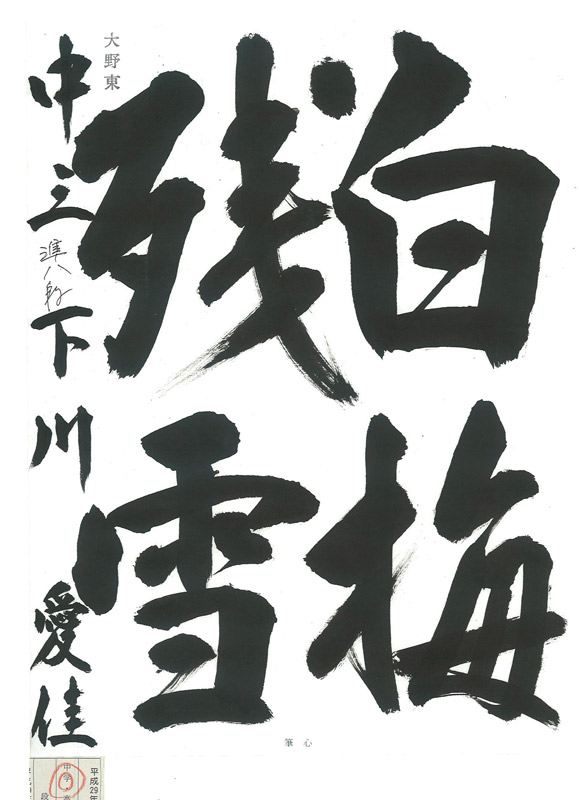 白梅
残雪
大野東
中三 準八段 下川愛佳
心筆
平成29年
中学
段